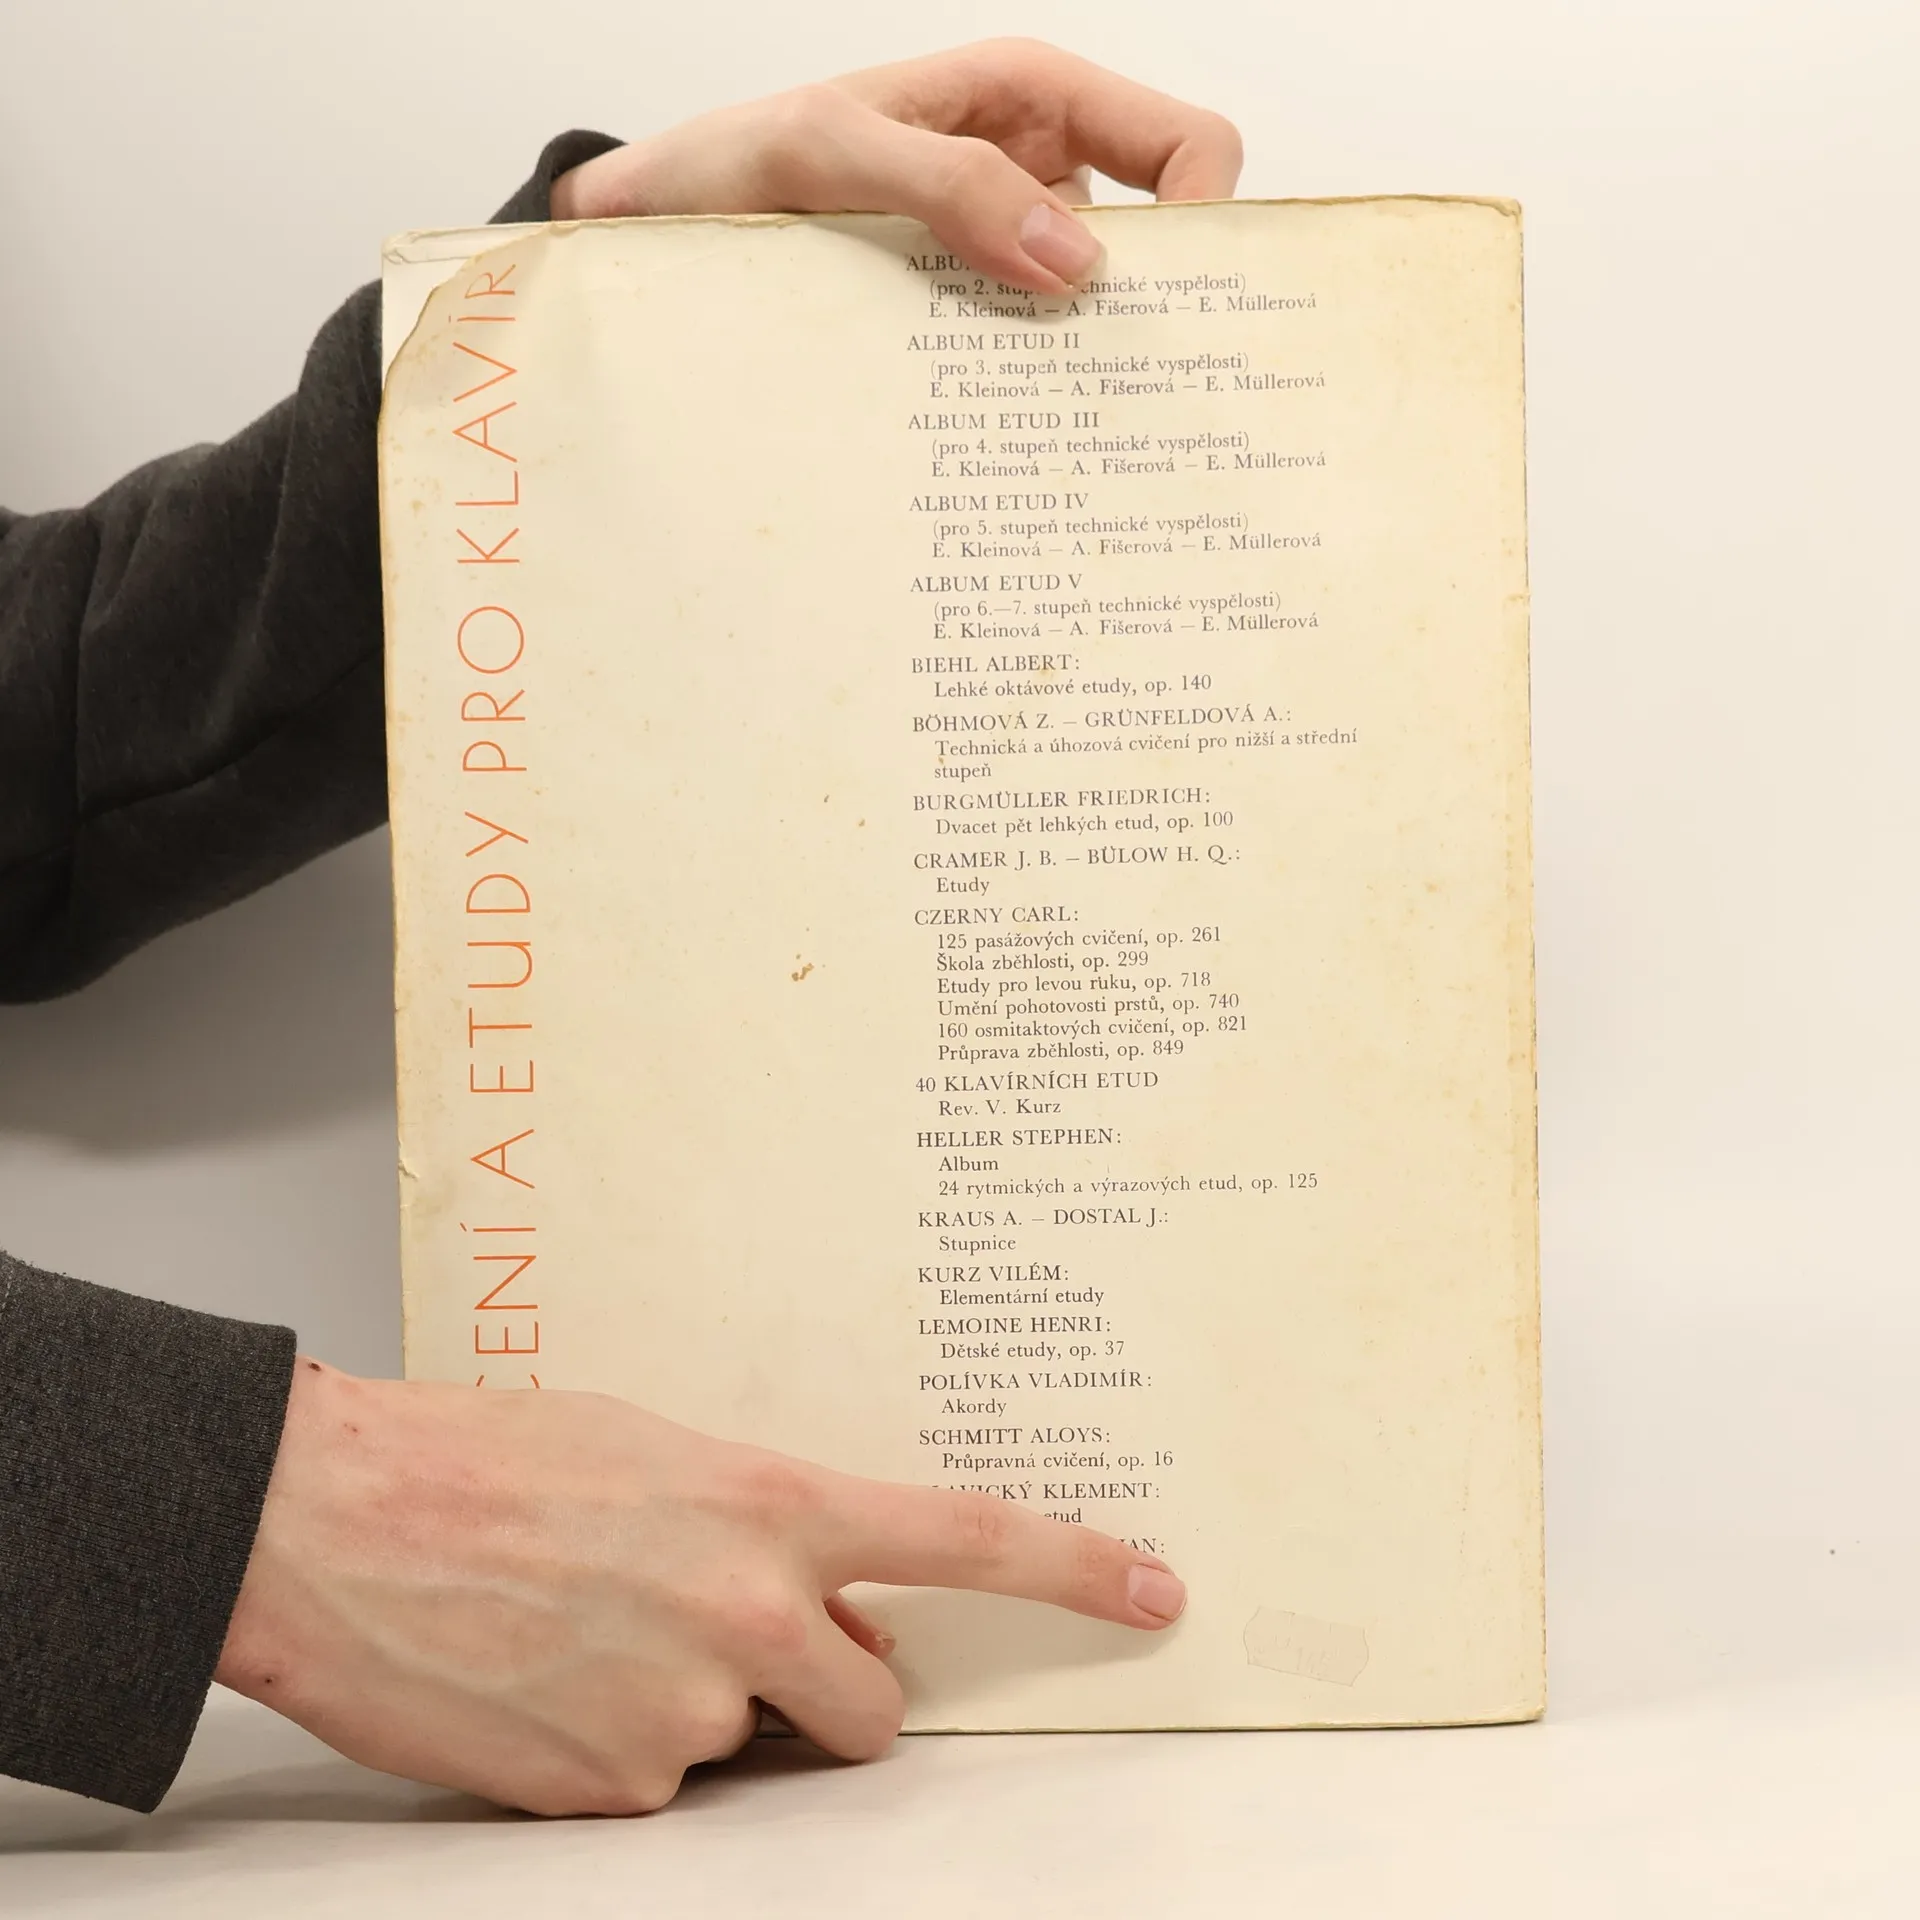 ENÍ A ETUDY PRO KLAVÍR
ALBU
(pro 2. chnické vyspělosti)
E. Kleinová — A. Fišerová — E. Müllerová
ALBUM ETUD II
(pro 3. stupeň technické vyspělosti)
E. Kleinová — A. Fišerová — E. Müllerová
ALBUM ETUD III
(pro 4. stupeň technické vyspělosti)
E. Kleinová — A. Fišerová — E. Müllerová
ALBUM ETUD IV
(pro 5. stupeň technické vyspělosti)
E. Kleinová — A. Fišerová — E. Müllerová
ALBUM ETUD V
(pro 6.—7. stupeň technické vyspělosti)
E. Kleinová — A. Fišerová — E. Müllerová
BIEHL ALBERT:
Lehké oktávové etudy, op. 140
BÖHMOVÁ Z. — GRÜNFELDOVÁ A.:
Technická a úhozová cvičení pro nižší a střední
stupeň
BURGMÜLLER FRIEDRICH:
Dvacet pět lehkých etud, op. 100
CRAMER J. B. — BÜLOW H. Q.:
Etudy
CZERNY CARL:
125 pasážových cvičení, op. 261
Škola zběhlosti, op. 299
Etudy pro levou ruku, op. 718
Umění pohotovosti prstů, op. 740
160 osmitaktových cvičení, op. 821
Průprava zběhlosti, op. 849
40 KLAVÍRNÍCH ETUD
Rev. V. Kurz
HELLER STEPHEN:
Album
24 rytmických a výrazových etud, op. 125
KRAUS A. — DOSTAL J.:
Stupnice
KURZ VILÉM:
Elementární etudy
LEMOINE HENRI:
Dětské etudy, op. 37
POLÍVKA VLADIMÍR:
Akordy
SCHMITT ALOYS:
Průpravná cvičení, op. 16
AVICKÝ KLEMENT:
etud
AN: